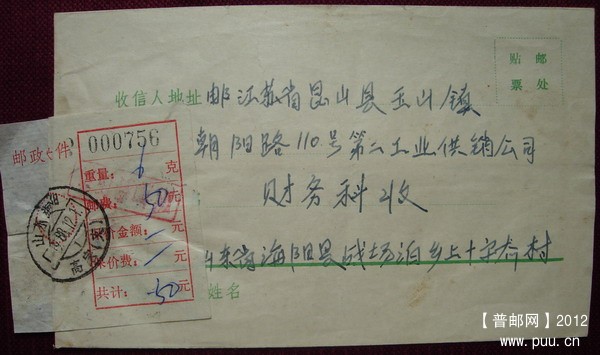 贴邮
票处
收信人地址邮江苏省昆山县玉山镇
朝阳路110号第二工业供销公司
财务科收
山东省海阳县战场泊乡上十字夼村
姓名
邮政 件
000756
重量: 克
邮费: 50元
保价金额: 一元
保价费: 一元
共计: 50元
山东海阳
【普邮网】2012
www.puu.cn